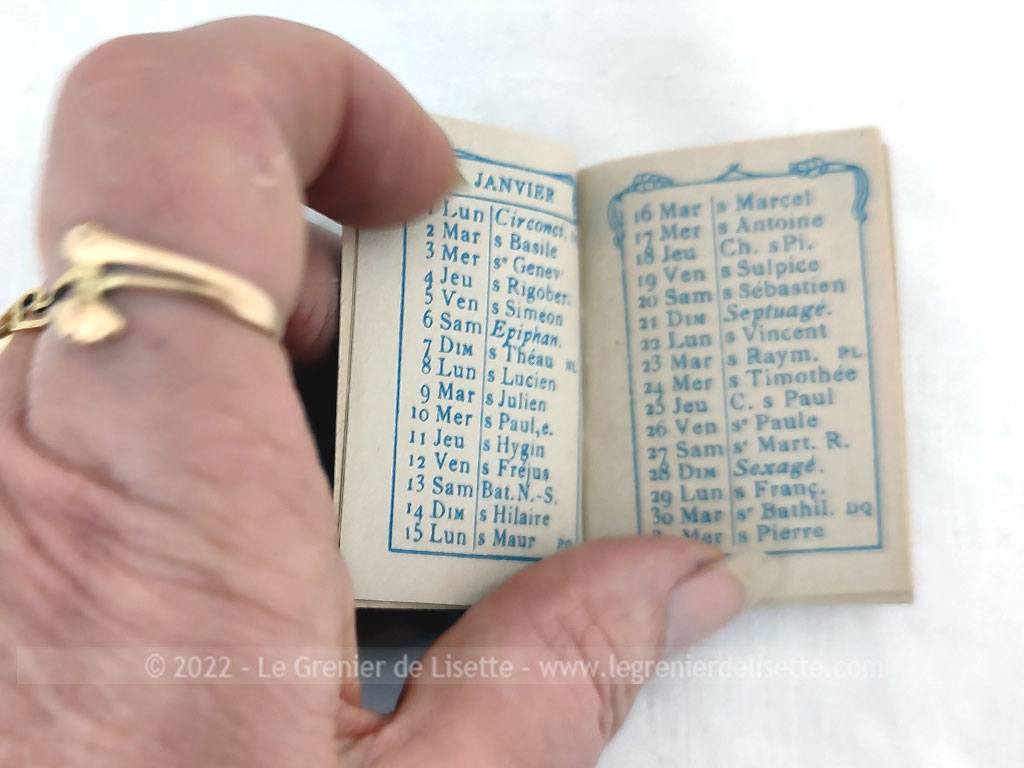 JANVIER
1 Lun Circonct.
2 Mar s Basile
3 Mer se Genev
4 Jeu s Rigobert
5 Ven s Siméon
6 Sam Epiphan.
7 DIM s Théau NL
8 Lun s Lucien
9 Mar s Julien
10 Mer s Paul,e.
11 Jeu s Hygin
12 Ven s Fréjus
13 Sam Bat. N.-S.
14 DIM s Hilaire
15 Lun s Maur PQ
16 Mar s Marcel
17 Mer s Antoine
18 Jeu Ch. s Pi.
19 Ven s Sulpice
20 Sam s Sébastien
21 DIM Septuagé.
22 Lun s Vincent
23 Mar s Raym. PL
24 Mer s Timothée
25 Jeu C. s Paul
26 Ven se Paule
27 Sam se Mart. R.
28 DIM Sexagé.
29 Lun s Franç.
30 Mar se Bathil. DQ
Mer s Pierre
© 2022 - Le Grenier de Lisette - www.legrenierdelisette.com